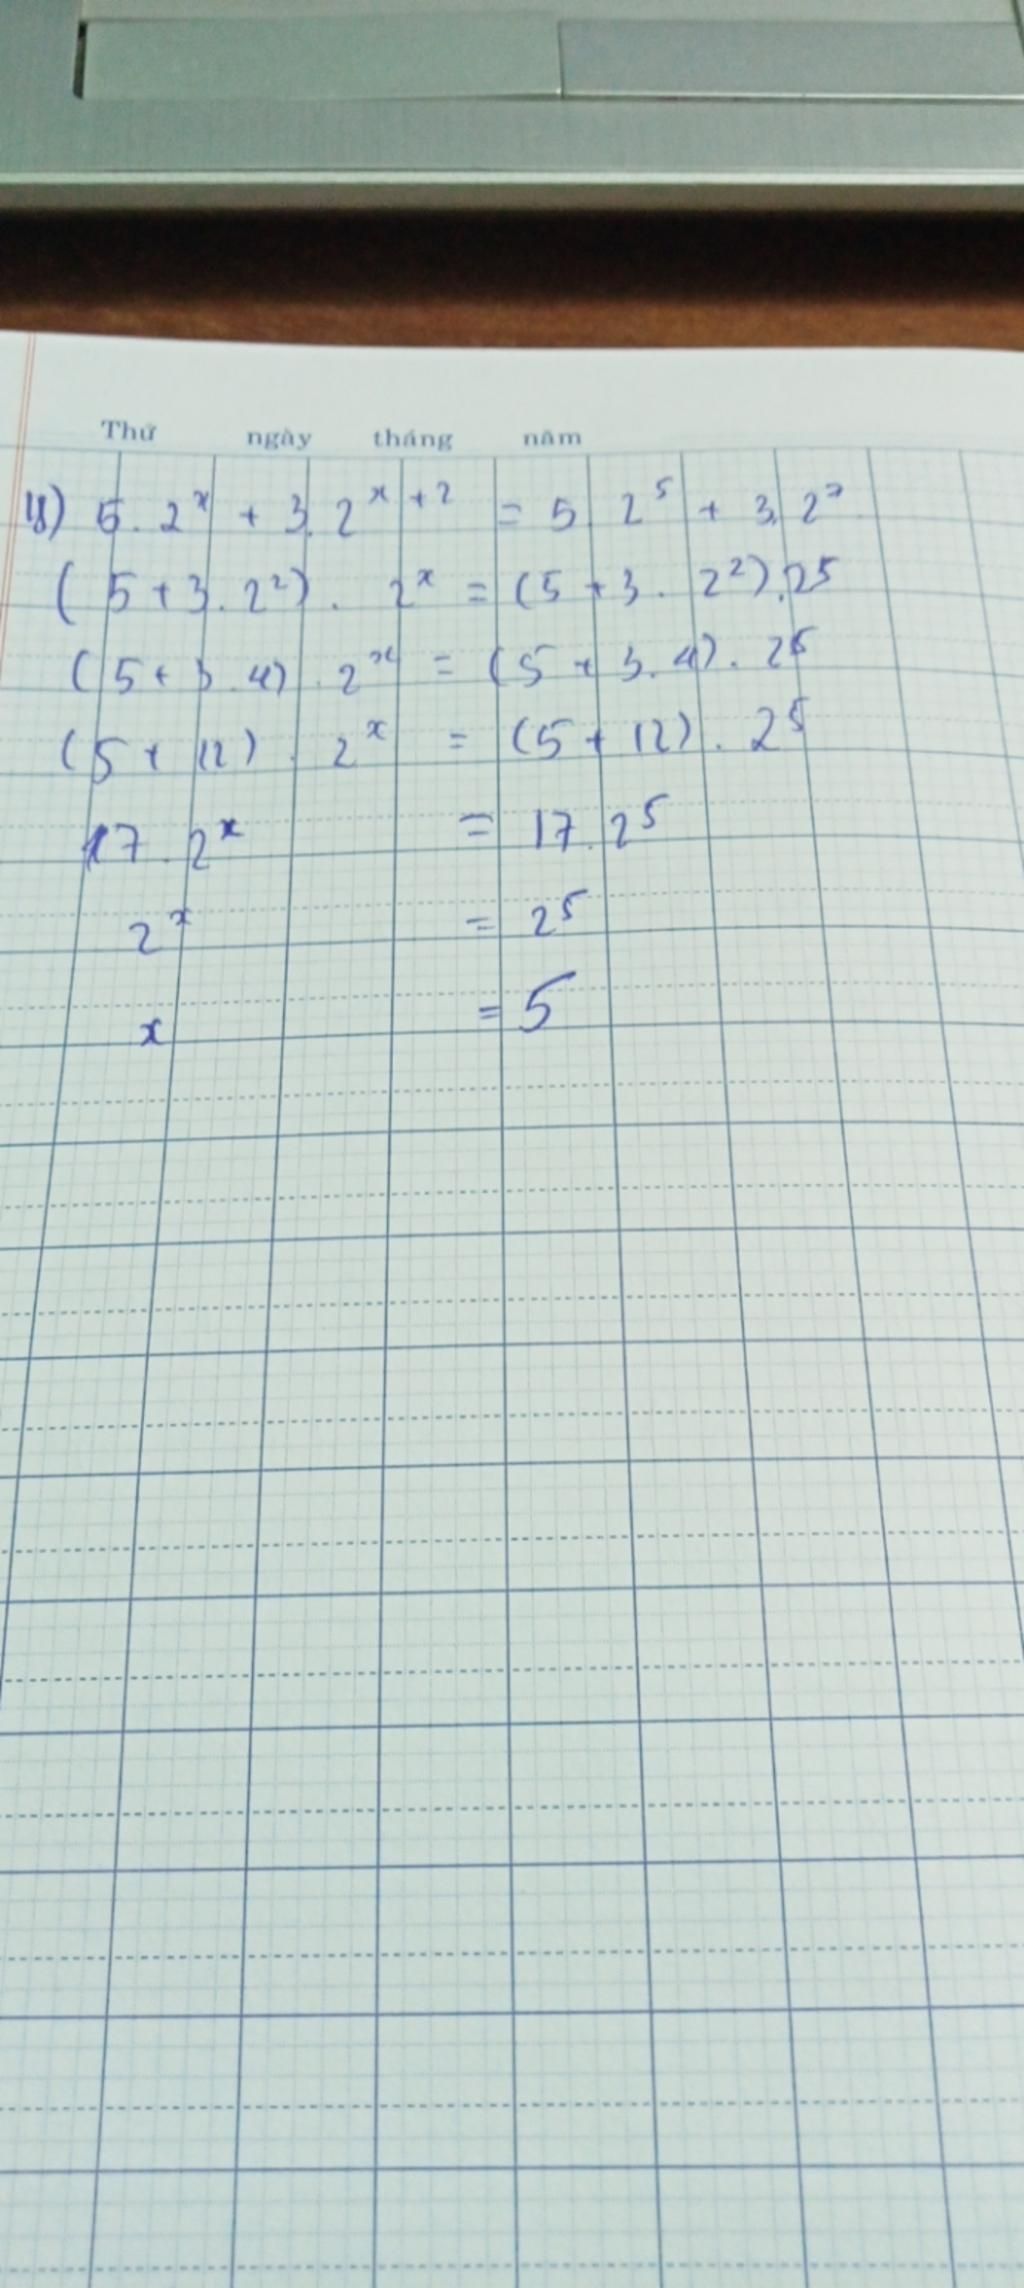 Thứ ngày tháng năm
y) 5. 2ˣ + 3. 2ˣ⁺² = 5. 2⁵ + 3. 2⁷
(5 + 3. 2²). 2ˣ = (5 + 3. 2²). 2⁵
(5 + 3. 4). 2ˣ = (5 + 3. 4). 2⁵
(5 + 12). 2ˣ = (5 + 12). 2⁵
17. 2ˣ = 17. 2⁵
2ˣ = 2⁵
x = 5